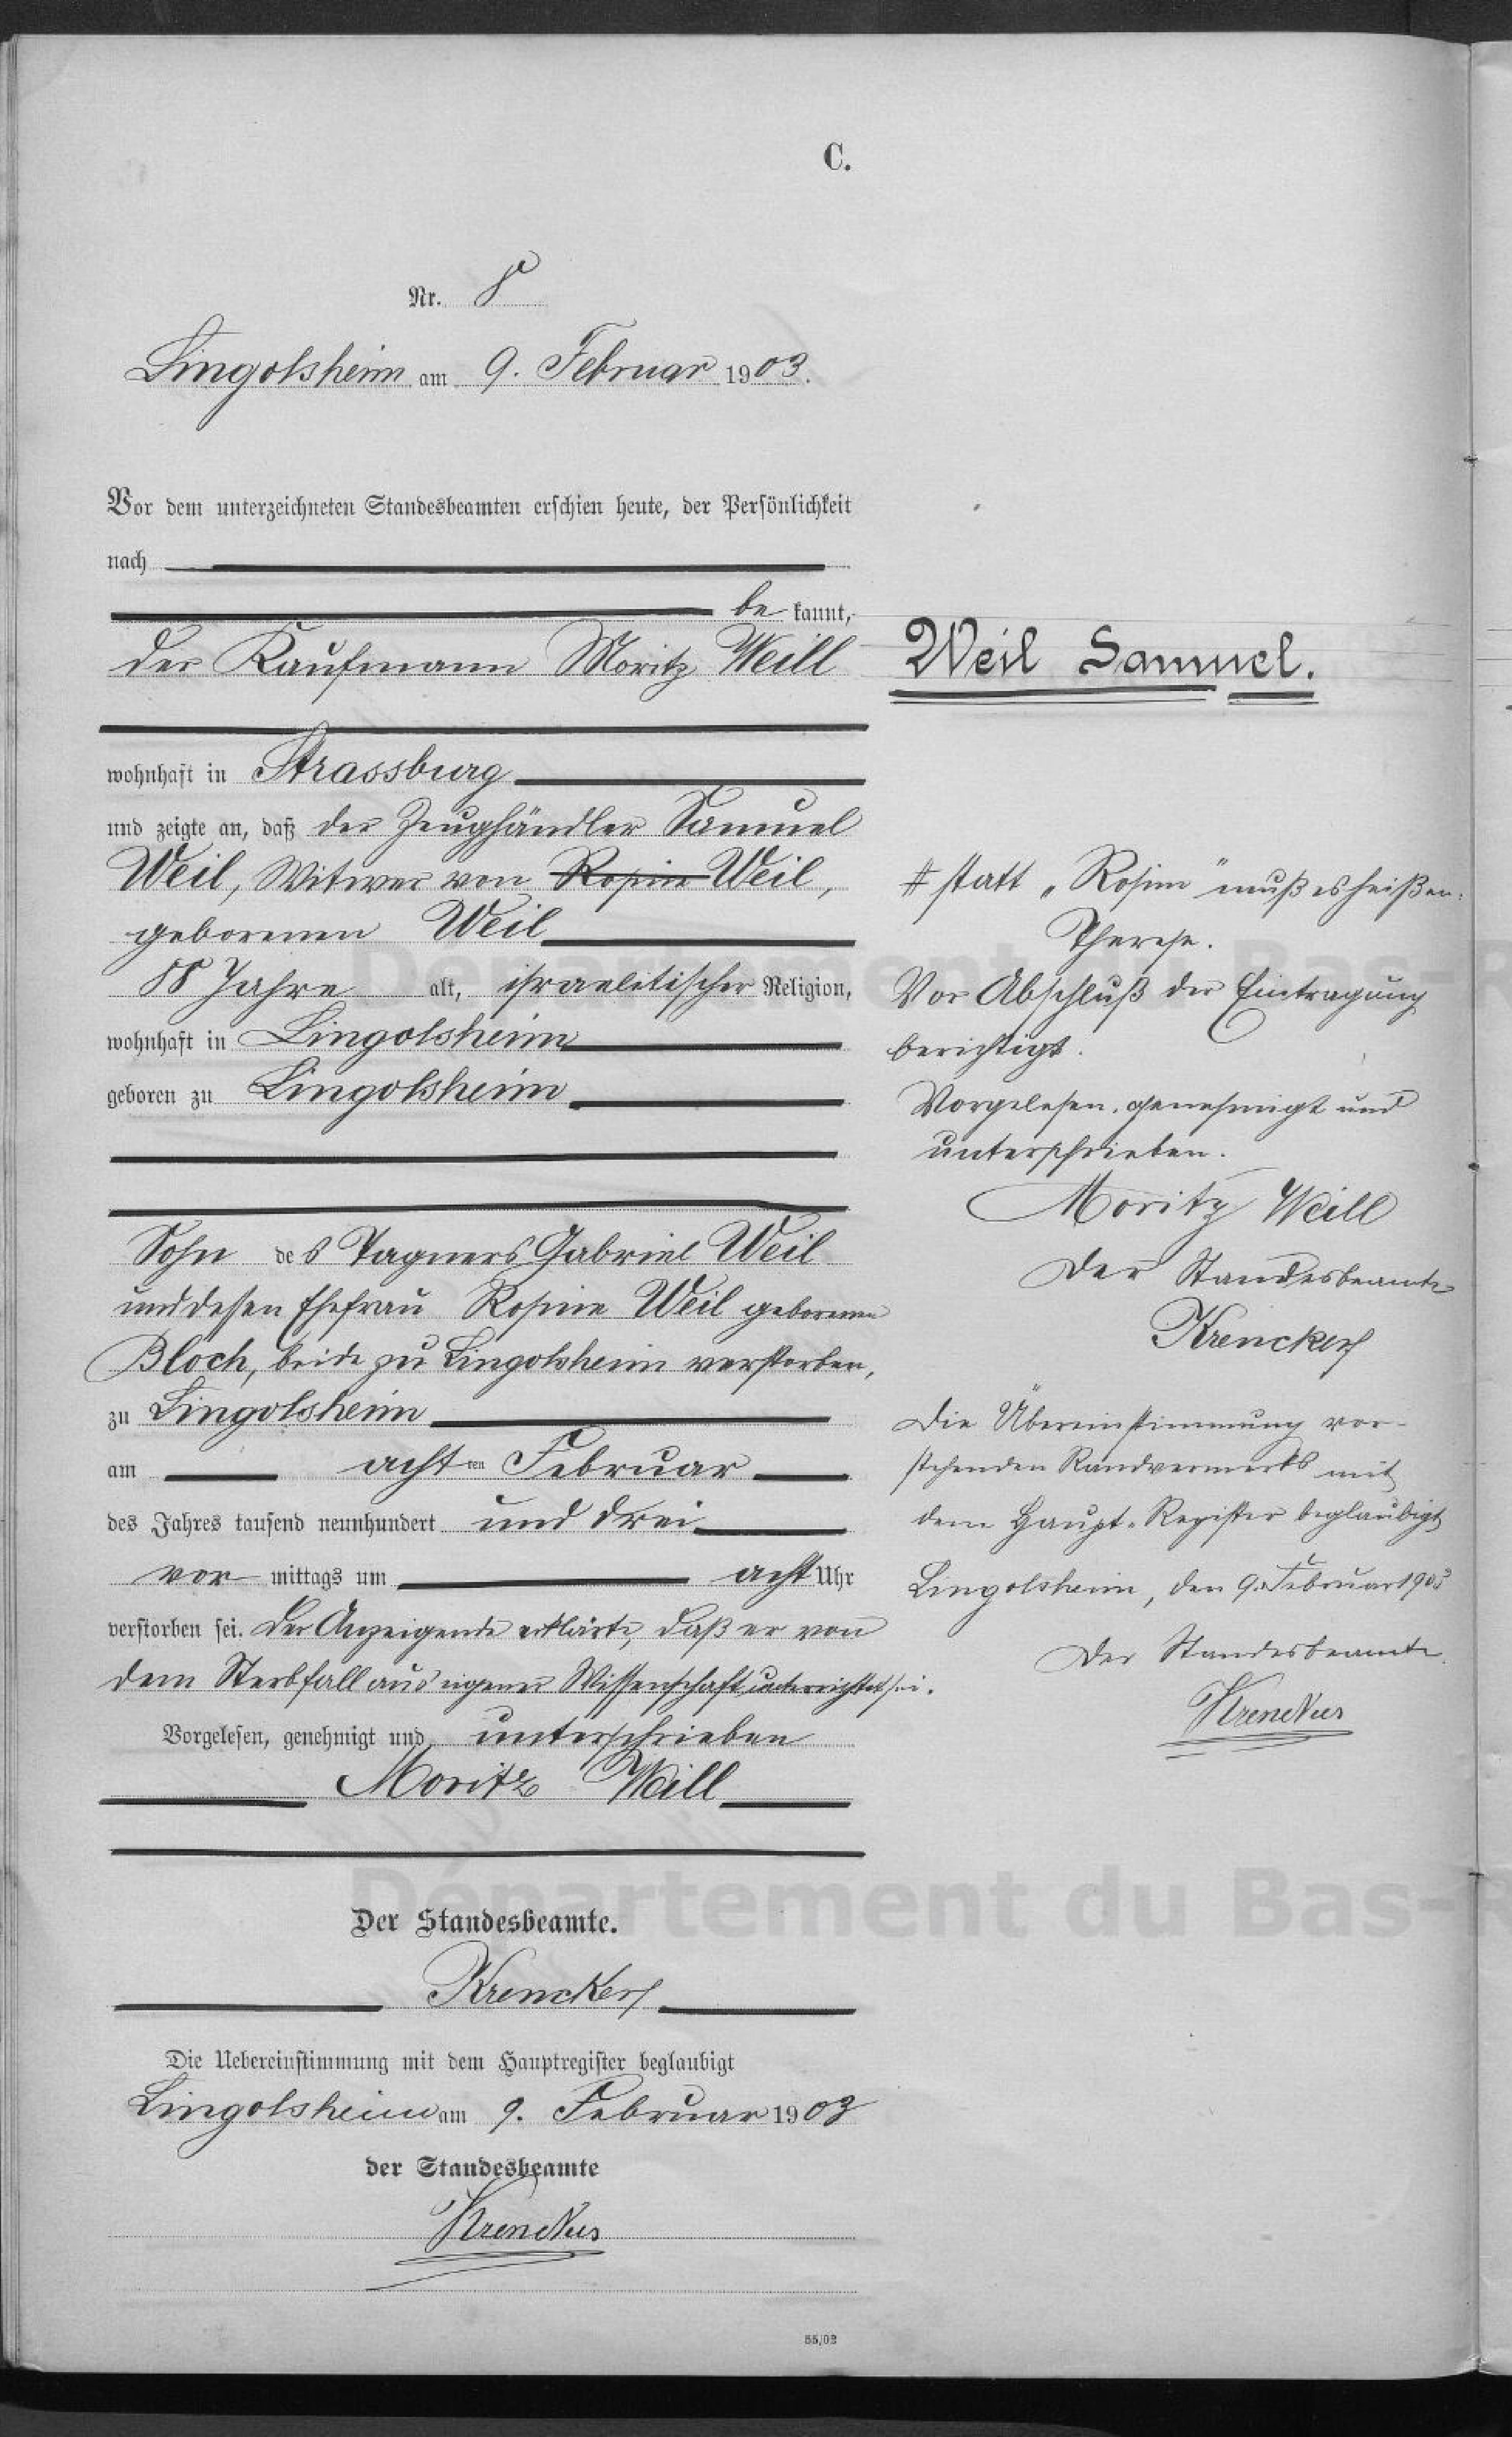 C.
Nr. 8
Lingolsheim am 9. Februar 1903.
Vor dem unterzeichneten Standesbeamten erschien heute, der Persönlichkeit
nach
be kannt,
der Kaufmann Moritz Weill
wohnhaft in Strassburg
und zeigte an, daß der Zeughändler Samuel
Weil, Witwer von Rosine Weil,
geborenen Weil
88 Jahre alt, israelitischer Religion,
wohnhaft in Lingolsheim
geboren zu Lingolsheim
Sohn des Tagners Gabriel Weil
und dessen Ehefrau Rosine Weil geborenen
Bloch, beide zu Lingolsheim verstorben,
zu Lingolsheim
am achten Februar
des Jahres tausend neunhundert und drei
vor mittags um acht Uhr
verstorben sei. Der Anzeigende erklärte, daß er von
dem Sterbfall aus eigener Wissenschaft unterrichtet sei.
Vorgelesen, genehmigt und unterschrieben
Moritz Weill
Der Standesbeamte.
Krencker
Die Uebereinstimmung mit dem Hauptregister beglaubigt
Lingolsheim am 9. Februar 1903
der Standesbeamte
Krencker
55/02
Weil Samuel.
# statt „Rosine" muß es heißen:
Therese.
Vor Abschluß der Eintragung
berichtigt.
Vorgelesen, genehmigt und
unterschrieben.
Moritz Weill
Der Standesbeamte
Krencker
Die Übereinstimmung vor-
stehenden Randvermerks mit
dem Haupt-Register beglaubigt
Lingolsheim, den 9. Februar 1903
Der Standesbeamte.
Krencker
Département du Bas-R
Département du Bas-R